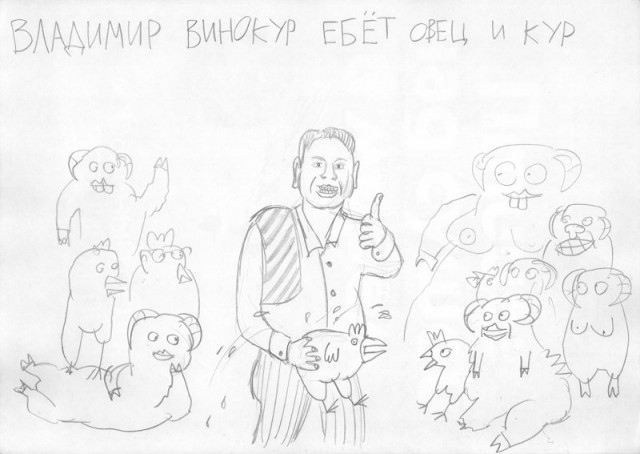 ВЛАДИМИР ВИНОКУР ЕБЁТ ОВЕЦ И КУР